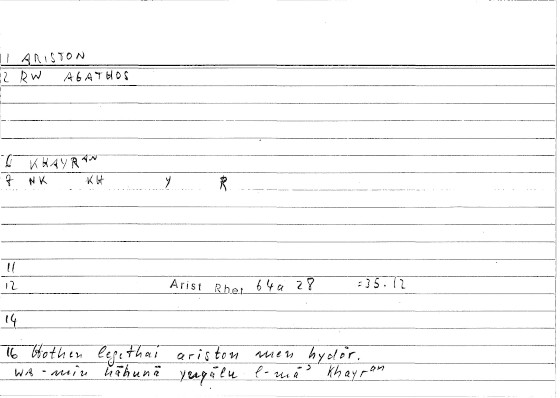 11 ARISTON
2 RW AGATHOS
6 KHAYRAN
7 NK KH Y R
11
12 Arist Rhet 64a 28 =35.12
14
16 Hothen legethai ariston men hydōr.
wa-min hāhunā yuqālu l-māʾ khayran